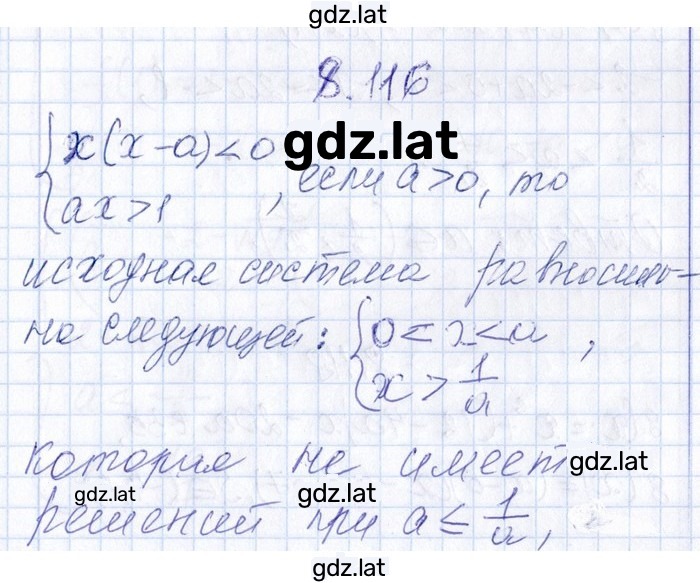 gdz.lat
8.116
{ x(x-a)<0 gdz.lat
{ ax>1 , если a>0, то
исходная система равносиль-
на следующей: { 0<x<a ,
{ x > 1/a
которая не имеет gdz.lat
gdz.lat gdz.lat
решений при a ≤ 1/a,
gdz.lat